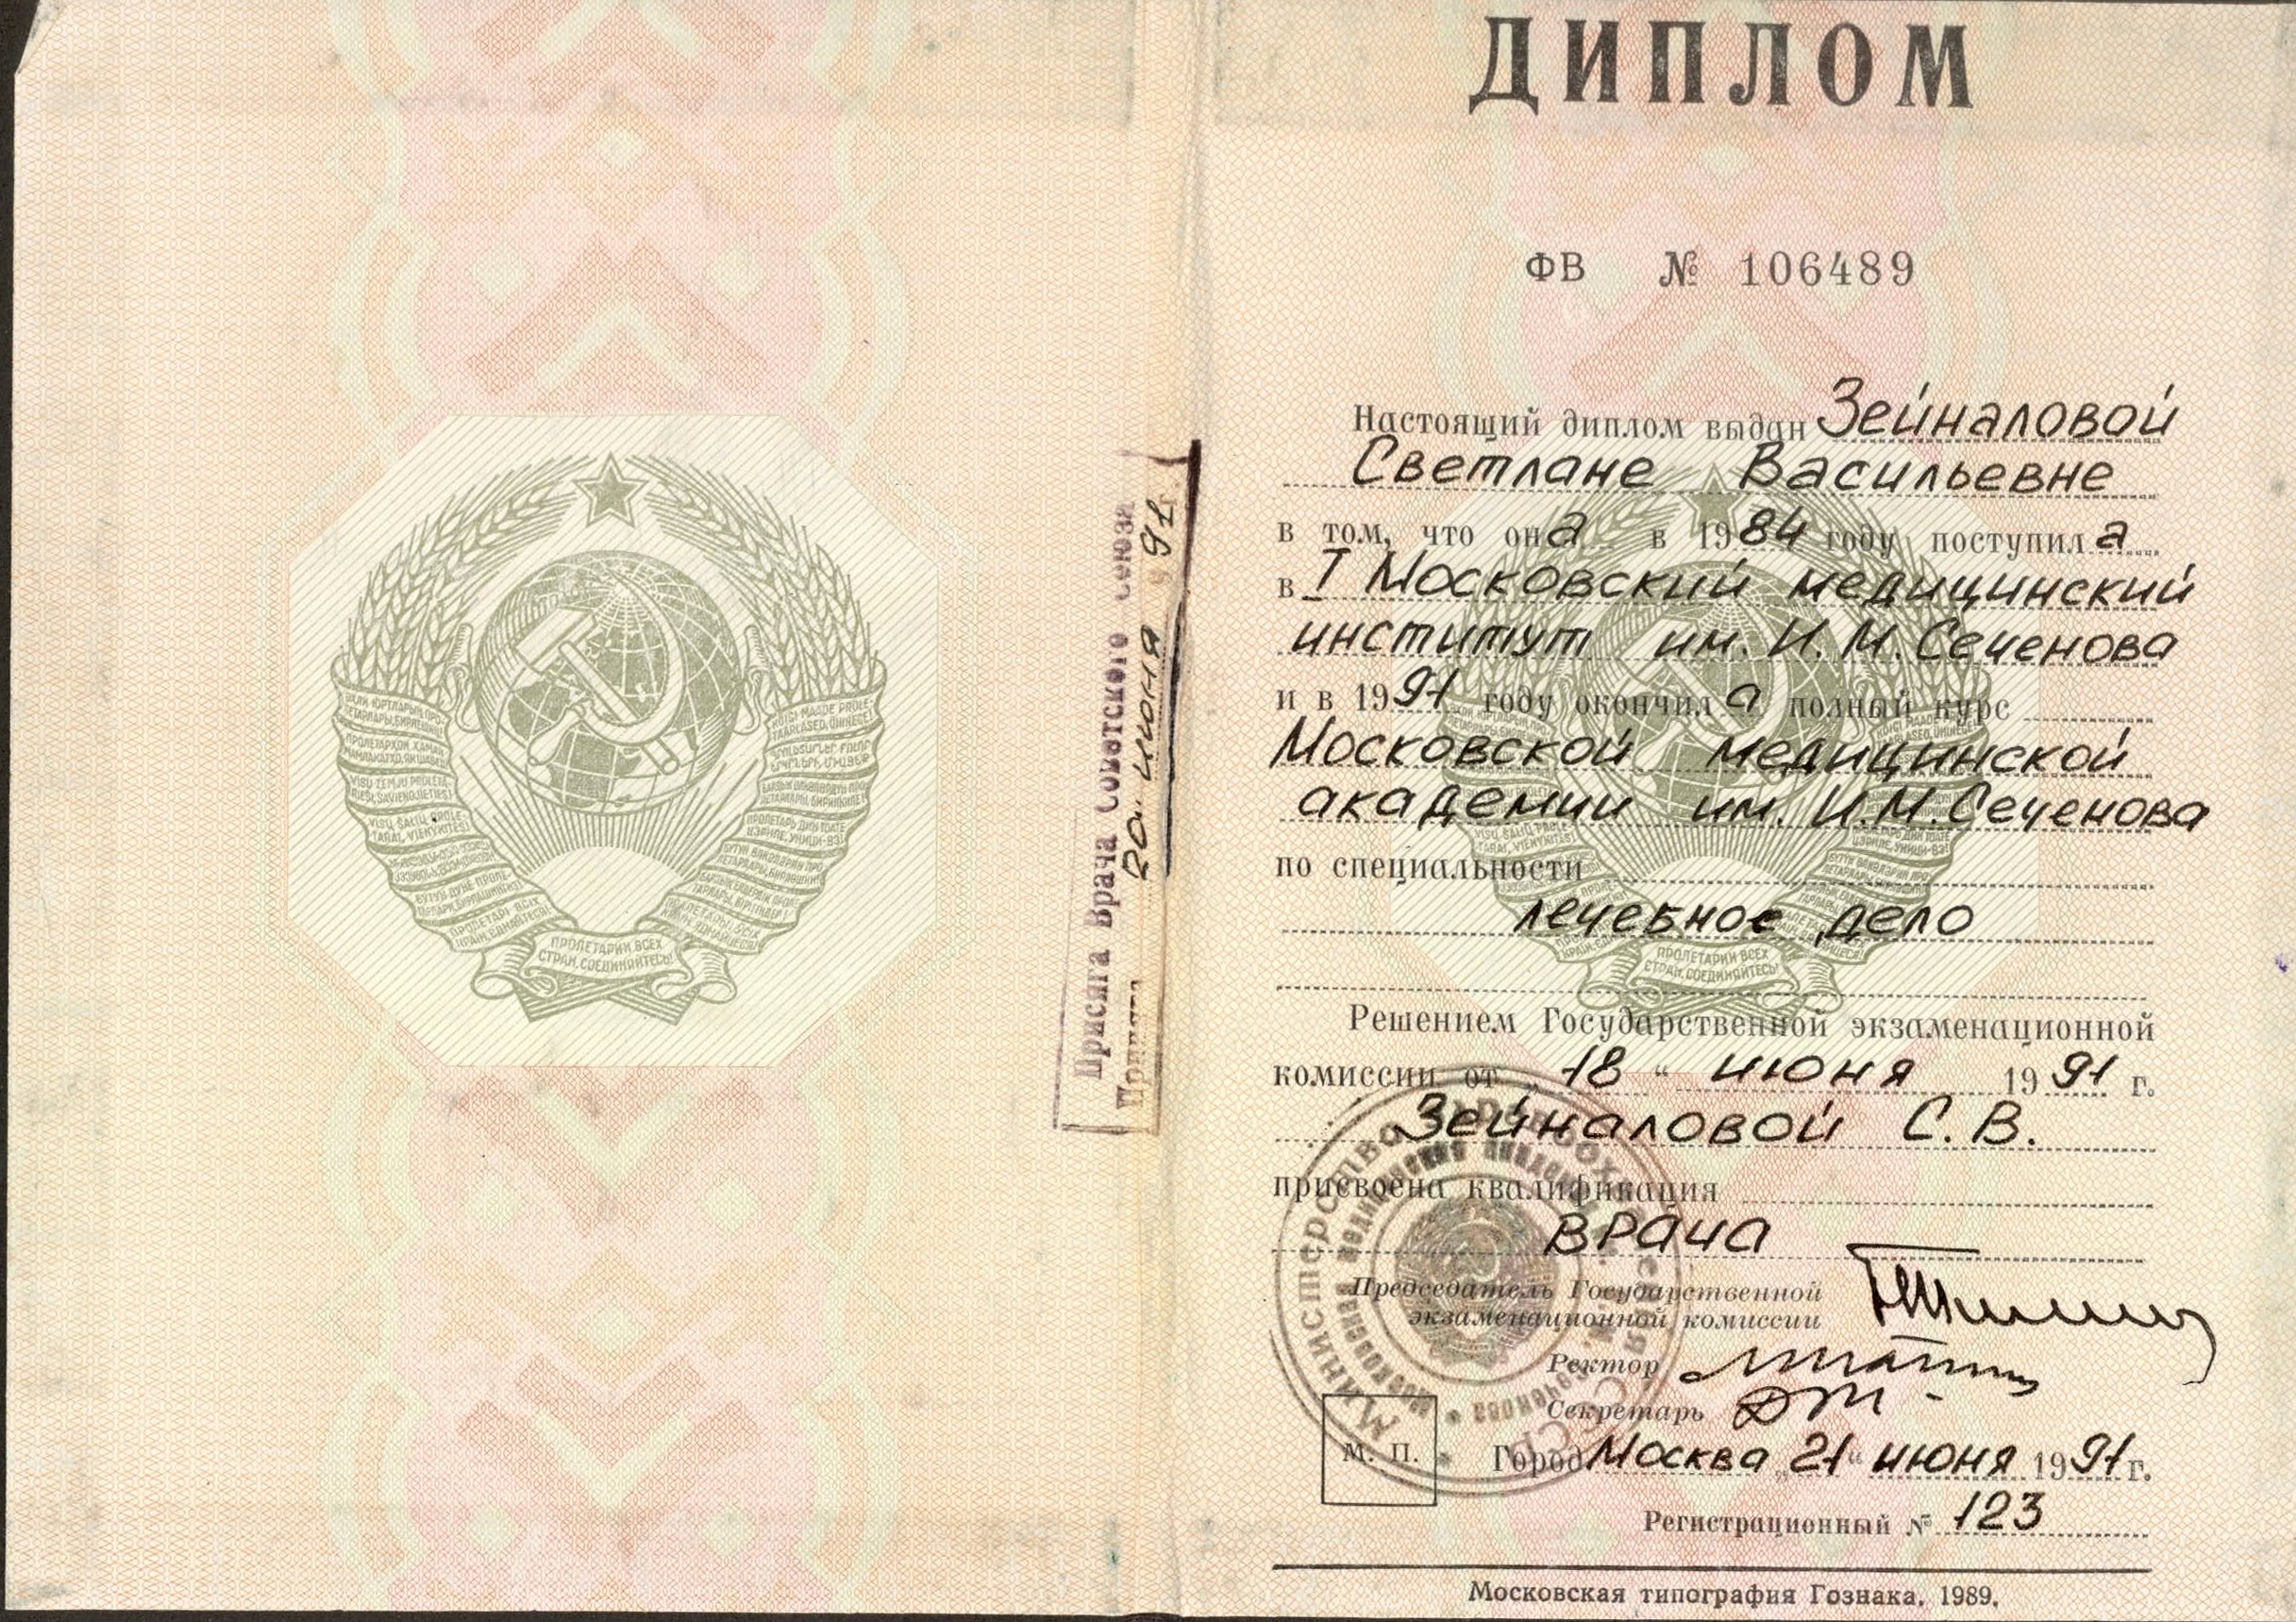 ПРОЛЕТАРИИ ВСЕХ
СТРАН, СОЕДИНЯЙТЕСЬ!
Присяга Врача Советского Союза
Принята "20" июня 1991 г.
ДИПЛОМ
ФВ № 106489
Настоящий диплом выдан Зейналовой
Светлане Васильевне
в том, что она в 1984 году поступила
в I Московский медицинский
институт им. И.М. Сеченова
и в 1991 году окончила полный курс
Московской медицинской
академии им. И.М. Сеченова
по специальности
лечебное дело
ПРОЛЕТАРИИ ВСЕХ
СТРАН, СОЕДИНЯЙТЕСЬ!
Решением Государственной экзаменационной
комиссии от „18“ июня 1991 г.
Зейналовой С. В.
присвоена квалификация
врача
Председатель Государственной
экзаменационной комиссии
Ректор
Секретарь
М. П.
Город Москва „21“ июня 1991 г.
Регистрационный № 123
Московская типография Гознака. 1989.